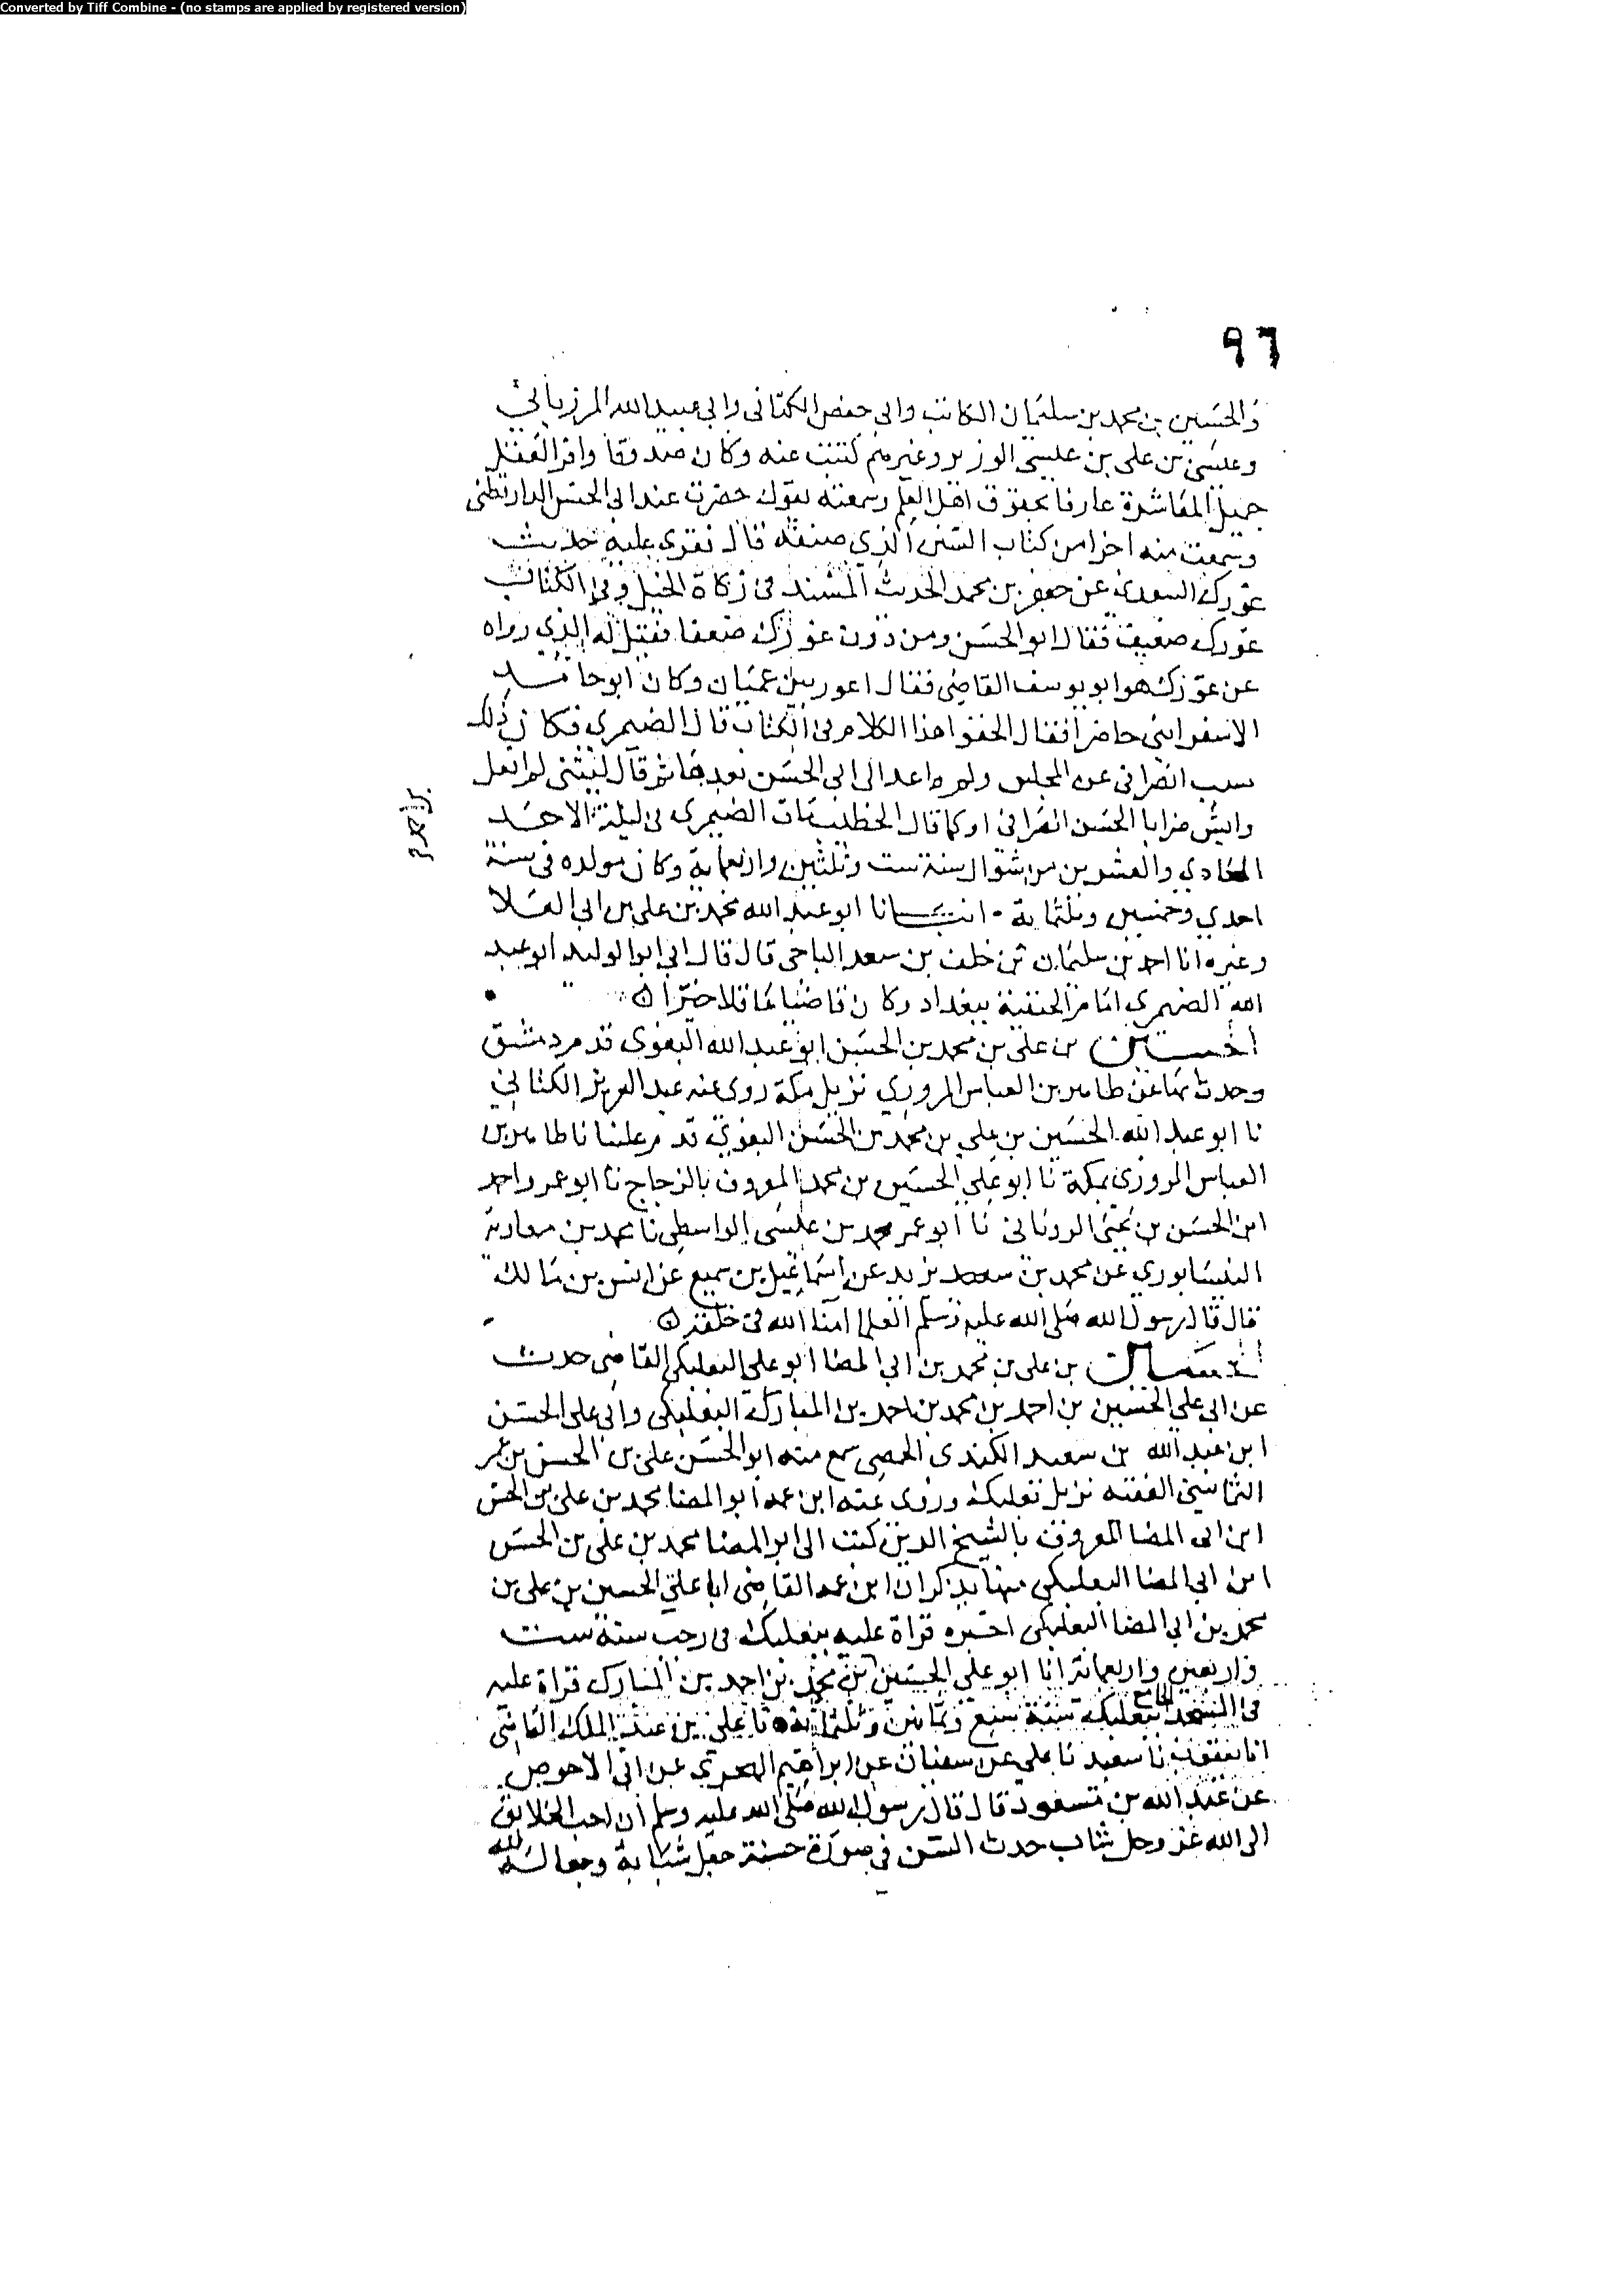 Converted by Tiff Combine - (no stamps are applied by registered version)
٩٦
والحسين بن محمد بن سليمان الكاتب وابي حفص الكتاني وابي عبيد الله المرزباني
وعيسى بن علي بن عيسى الوزير وغيرهم كتبت عنه وكان صدوقا وافر العقل
جميل المعاشرة عارفا بحقوق اهل العلم وسمعته يقول حضرت عند ابي الحسن الدارقطني
وسمعت منه اجزا من كتاب السنن الذي صنفه قال فقرى عليه حديث
غورك السعدي عن جعفر بن محمد الحديث المسند في زكاة الخيل وفي الكتاب
غورك ضعيف فقال ابو الحسن ومن دون غورك ضعفا فقيل له الذي رواه
عن غورك هو ابو يوسف القاضي فقال اعور بين عميان وكان ابو حامد
الاسفرايني حاضرا فقال الحقوا هذا الكلام في الكتاب قال الصيمري فكان ذلك
سبب انصرافي عن المجلس ولم اعد الى ابي الحسن بعدها ثم قال ليتني لم افعل
وايش ضر ابا الحسن انصرافي او كما قال الخطيب مات الصيمري في ليلة الاحد
الحادي والعشرين من شوال سنة ست وثلثين واربعماية وكان مولده في سنة
احدي وخمسين وثلثماية انبانا ابو عبد الله محمد بن علي بن ابي العلا
وغيره انا احمد بن سليمان بن خلف بن سعد الباجي قال قال ابي ابو الوليد ابو عبد
الله الصيمري امام الحنفية ببغداد وكان قاضيا عاقلا خيرا
الحسين بن علي بن محمد بن الحسن ابو عبد الله البغوي قدم دمشق
وحدث بها عن طاهر بن العباس المروزي نزيل مكة روى عنه عبد العزيز الكتاني
نا ابو عبد الله الحسين بن علي بن محمد بن الحسن البغوي قدم علينا نا طاهر بن
العباس المروزي بمكة نا ابو علي الحسين بن محمد المعروف بالزجاج نا ابو عمر واحمد
ابن الحسن بن يحيى نا ابو عمر محمد بن عيسى الواسطي نا محمد بن معاوية
النيسابوري عن محمد بن يزيد عن اسماعيل بن سميع عن انس بن مالك
قال قال رسول الله صلى الله عليه وسلم العلما امنا الله في خلقه
الحسين بن علي بن محمد بن ابي المضا ابو علي البعلبكي القاضي حدث
عن ابي علي الحسين بن احمد بن محمد بن احمد بن المبارك البعلبكي وابي علي الحسن
ابن عبد الله بن سعيد الكندي الحمصي سمع منه ابو الحسن علي بن الحسن بن عمر
الثمانيني الفقيه نزيل بعلبك وروى عنه ابن عمه ابو المضا محمد بن علي بن الحسن
ابن ابي المضا المعروف بالشيخ الدين كتب الى ابو المضا محمد بن علي بن الحسن
ابن ابي المضا البعلبكي يذكر ان ابن عمه القاضي ابا علي الحسين بن علي بن
محمد بن ابي المضا البعلبكي اخبره قراة عليه ببعلبك في رجب سنة ست
واربعين واربعماية انا ابو علي الحسين بن محمد بن احمد بن المبارك قراة عليه
في المسجد الجامع ببعلبك سنة سبع وثمانين وثلثماية نا علي بن عبد الملك القاضي
انا يعقوب نا سعيد نا علي عن سفيان عن ابراهيم الهجري عن ابي الاحوص
عن عبد الله بن مسعود قال قال رسول الله صلى الله عليه وسلم ان احب الخلايق
الى الله عز وجل شاب حدث السن في صورة حسنة جعل شبابه وجماله لله